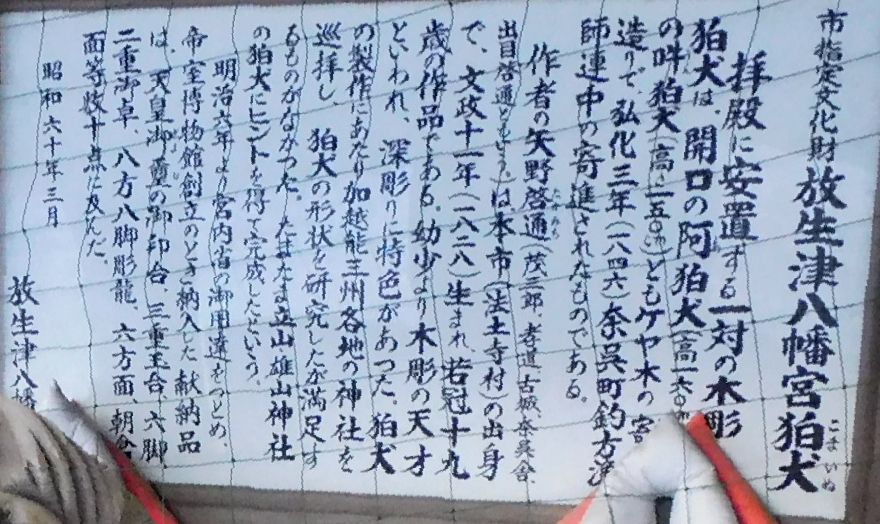 市指定文化財 放生津八幡宮狛犬
こまいぬ
拝殿に安置する一対の木彫
狛犬は、開口の阿狛犬(高一六〇
の吽狛犬(高一五〇㎝)ともケヤ木の寄
造りで、弘化三年(一八四六)奈呉町釣方
師連中の寄進されたものである。
作者の矢野啓通(茂三郎、孝道、古城、奈呉舎、
出目啓通ともいう。)は本市(法土寺村)の出身
で、文政十一年(一八二八)生まれ、若冠十九
歳の作品である。幼少より木彫の天才
といわれ、深彫りに特色があった。狛犬
の製作にあたり加越能三州各地の神社を
巡拝し、狛犬の形状を研究したが満足す
るものがなかった。たまたま立山雄山神社
の狛犬にヒントを得て完成したという。
明治六年より宮内省の御用達をつとめ、
帝室博物館創立のとき納入した献納品
は、天皇御璽の御印台、三重玉台、六脚
二重御卓、八方八脚彫龍、六方面、朝倉
面等数十点に及んだ。
昭和六十年三月
放生津八幡